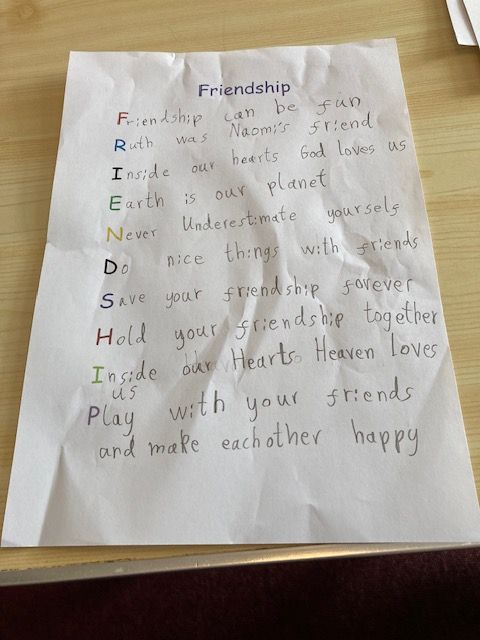 Friendship
Friendship can be fun
Ruth was Naomi's friend
Inside our hearts God loves us
Earth is our planet
Never Underestimate yourself
Do nice things with friends
Save your friendship forever
Hold your friendship together
Inside our Hearts Heaven Loves
us
Play with your friends
and make eachother happy